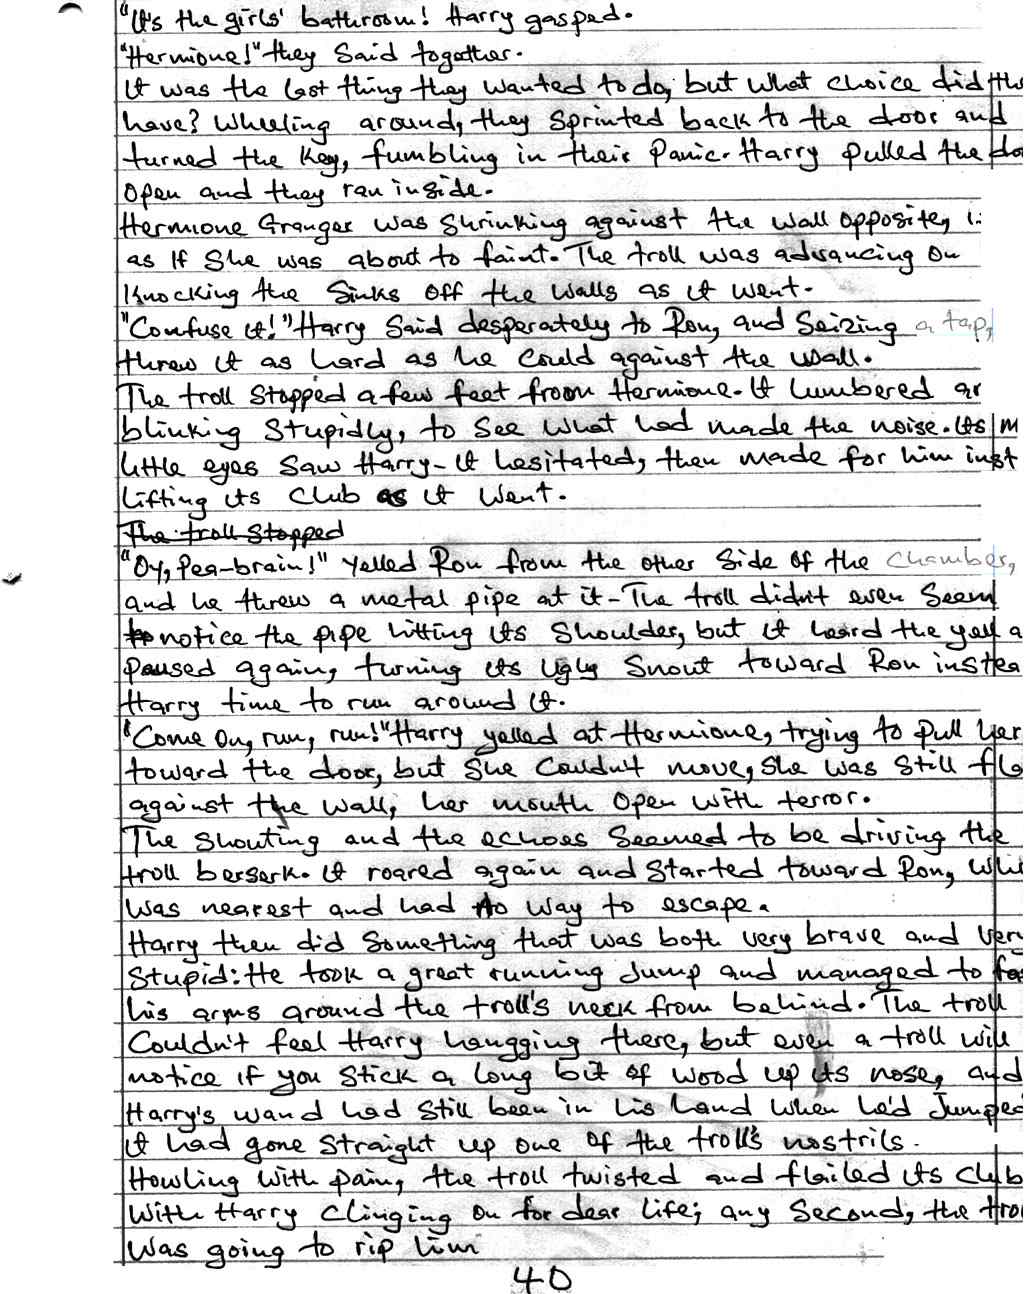 "It's the girls' bathroom! Harry gasped.
"Hermione!" they said together.
It was the last thing they wanted to do, but what choice did
have? Wheeling around, they sprinted back to the door and
turned the key, fumbling in their panic. Harry pulled the
open and they ran inside.
Hermione Granger was shrinking against the wall opposite,
as if she was about to faint. The troll was advancing on
knocking the sinks off the walls as it went.
"Confuse it!" Harry said desperately to Ron, and seizing a tap,
threw it as hard as he could against the wall.
The troll stopped a few feet from Hermione. It lumbered
blinking stupidly, to see what had made the noise. Its
little eyes saw Harry. It hesitated, then made for him
lifting its club as it went.
The troll stopped
"Oy, pea-brain!" yelled Ron from the other side of the chamber,
and he threw a metal pipe at it. The troll didn't even seem
to notice the pipe hitting its shoulder, but it heard the yell
paused again, turning its ugly snout toward Ron
Harry time to run around it.
"Come on, run, run!" Harry yelled at Hermione, trying to pull her
toward the door, but she couldn't move, she was still
against the wall, her mouth open with terror.
The shouting and the echoes seemed to be driving the
troll berserk. It roared again and started toward Ron,
was nearest and had no way to escape.
Harry then did something that was both very brave and very
stupid: He took a great running jump and managed to
his arms around the troll's neck from behind. The troll
couldn't feel Harry hangging there, but even a troll will
notice if you stick a long bit of wood up its nose, and
Harry's wand had still been in his hand when he'd jumped
it had gone straight up one of the troll's nostrils.
Howling with pain, the troll twisted and flailed its club
with Harry clinging on for dear life; any second, the
was going to rip him
40